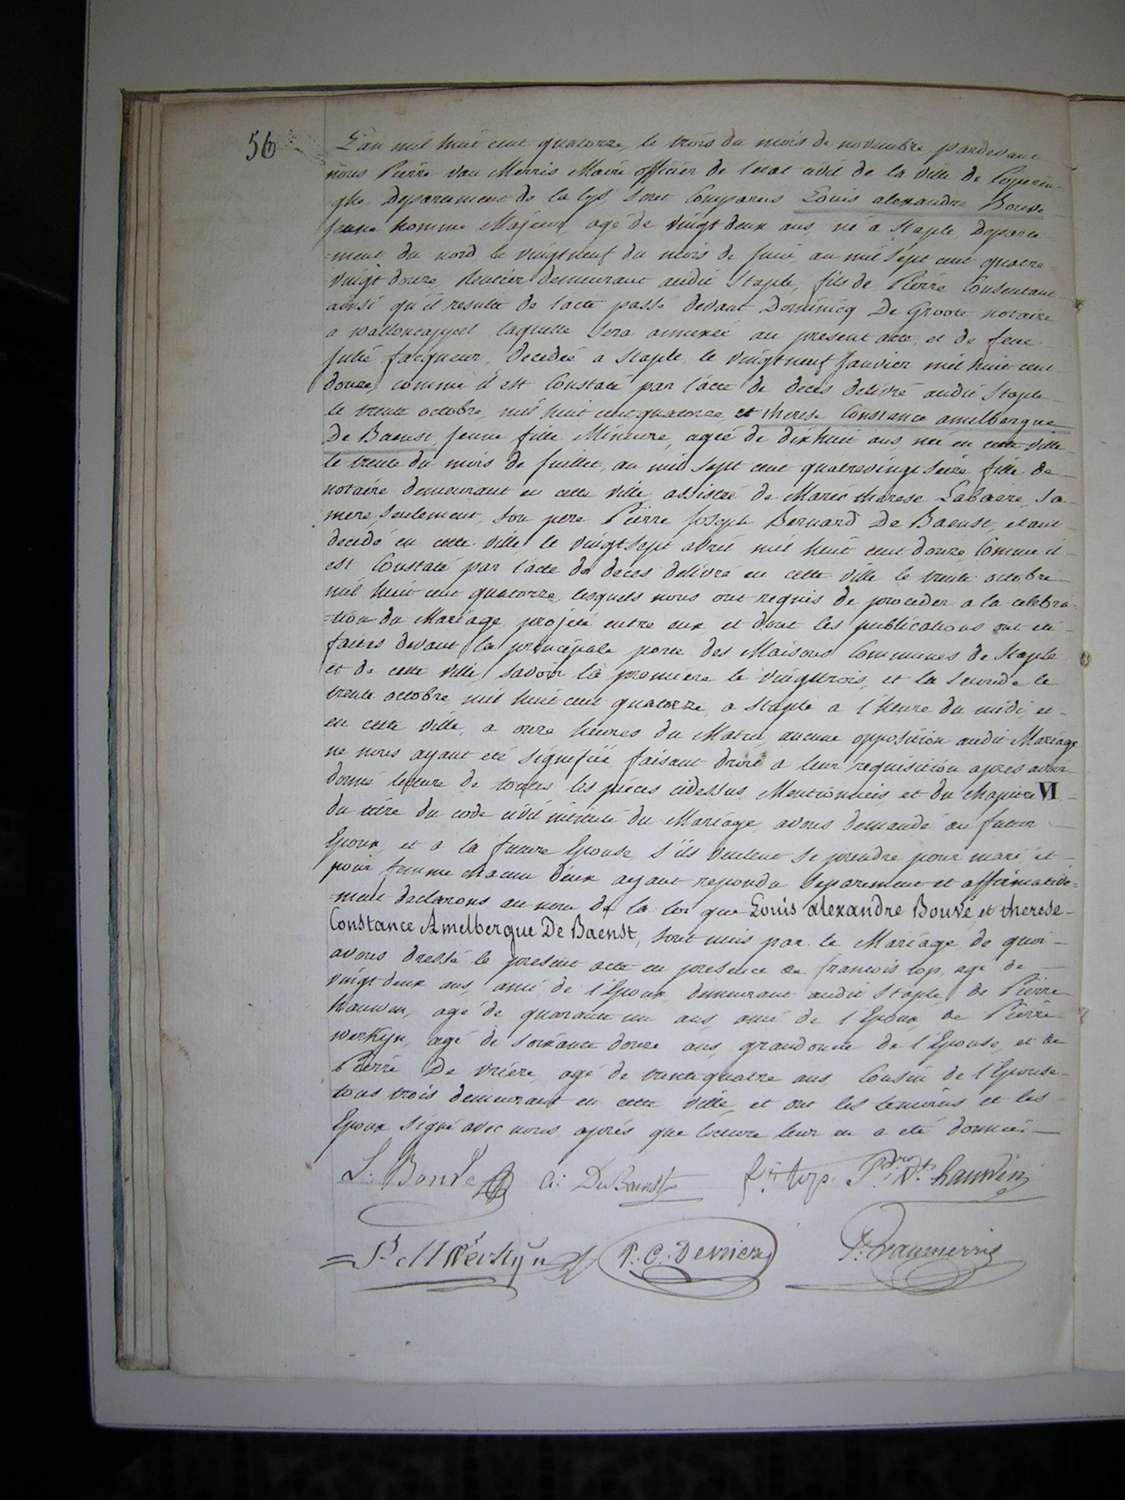 56
L'an mil huit cent quatorze, le trois du mois de novembre pardevant
nous Pierre van Merris Maire officier de l'etat civil de la ville de Poperin-
ghe Departement de la lys sont Comparus Louis alexandre Bouve
jeune homme Majeur, agé de vingt deux ans né a Staple, Departe-
ment du nord le vingtneuf du mois de juin, an mil sept cent quatre
vingt douze, Rentier demeurant audit Staple, fils de Pierre Consentant
ainsi qu'il resulte de l'acte passé devant Dominicq De Groote notaire
a walloncappel laquelle sera annexée au present acte, et de feue
Julie facqueur, Decedée a Staple le vingtneuf Janvier mil huit cent
douze, comme il est Constaté par l'acte de deces delivré audit Staple
le trente octobre mil huit cent quatorze, et therese Constance amelbergue
De Baenst, jeune fille Mineure, agée de dixhuit ans née en cette ville
le trente du mois de Juillet, an mil sept cent quatrevingt seize fille de
notaire demeurant en cette ville, assistée de Marie therese Labaere, sa
mere, seulement, son pere Pierre Joseph Bernard De Baenst, etant
decédé en cette ville le vingt sept avril mil huit cent douze Comme il
est Constaté par l'acte de deces delivré en cette ville le trente octobre
mil huit cent quatorze, lesquels nous ont requis de proceder a la celebra-
tion du Mariage projeté entre eux et dont les publications ont été
faites devant la principale porte des Maisons Communes de Staple
et de cette ville, savoir la premiere le vingt trois, et la seconde le
trente octobre, mil huit cent quatorze, a Staple a l'heure du midi et
en cette ville, a onze heures du Matin aucune opposition audit Mariage
ne nous ayant eté signifiée, faisant droit a leur requisition apres avoir
donné lecture de toutes les pièces cidessus Mentionnéis et du chapitre VI
du titre du code civil intitulé du Mariage, avons demandé au futur
Epoux, et a la future Epouse, s'ils veulent se prendre pour mari et
pour femme chacun d'eux ayant repondu Separement et affirmative-
ment declarons au nom de la loi que Louis alexandre Bouvé, et therese
Constance Amelbergue De Baenst, sont unis par le Mariage de quoi
avons dressé le present acte en presence de francois top, agé de
vingt deux ans, ami de l'Epoux demeurant audit Staple, de Pierre
hauwen, agé de quarante un ans ami de l'Epoux, de Pierre
werkyn, agé de soixante douze ans, grandoncle de l'Epouse, et de
Pierre De vriere, agé de trente quatre ans Cousin de l'Epouse
tous trois demeurant en cette ville, et ont les temoins et les
Epoux signé avec nous après que lecture leur en a eté donnéé
L: Bouve C: De Baenst
P: C: Devriere P: Vanmerris